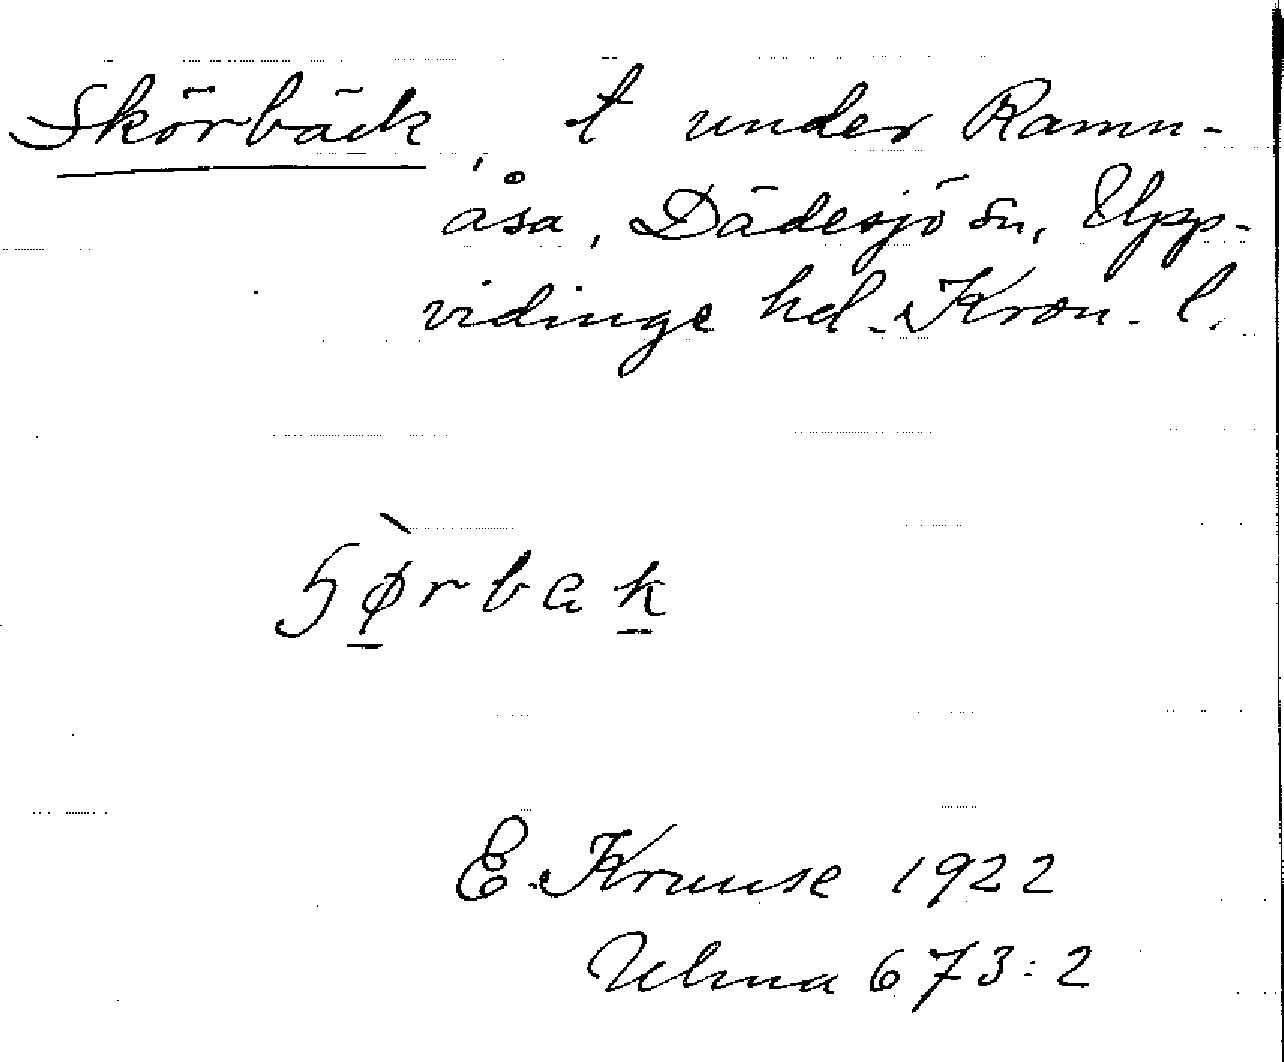 Skörbäck, t under Ramn-
åsa, Dädesjö sn, Upp-
vidinge hd. Kron. l.
ɧø̀rbak
E. Kruuse 1922
Ulma 673:2